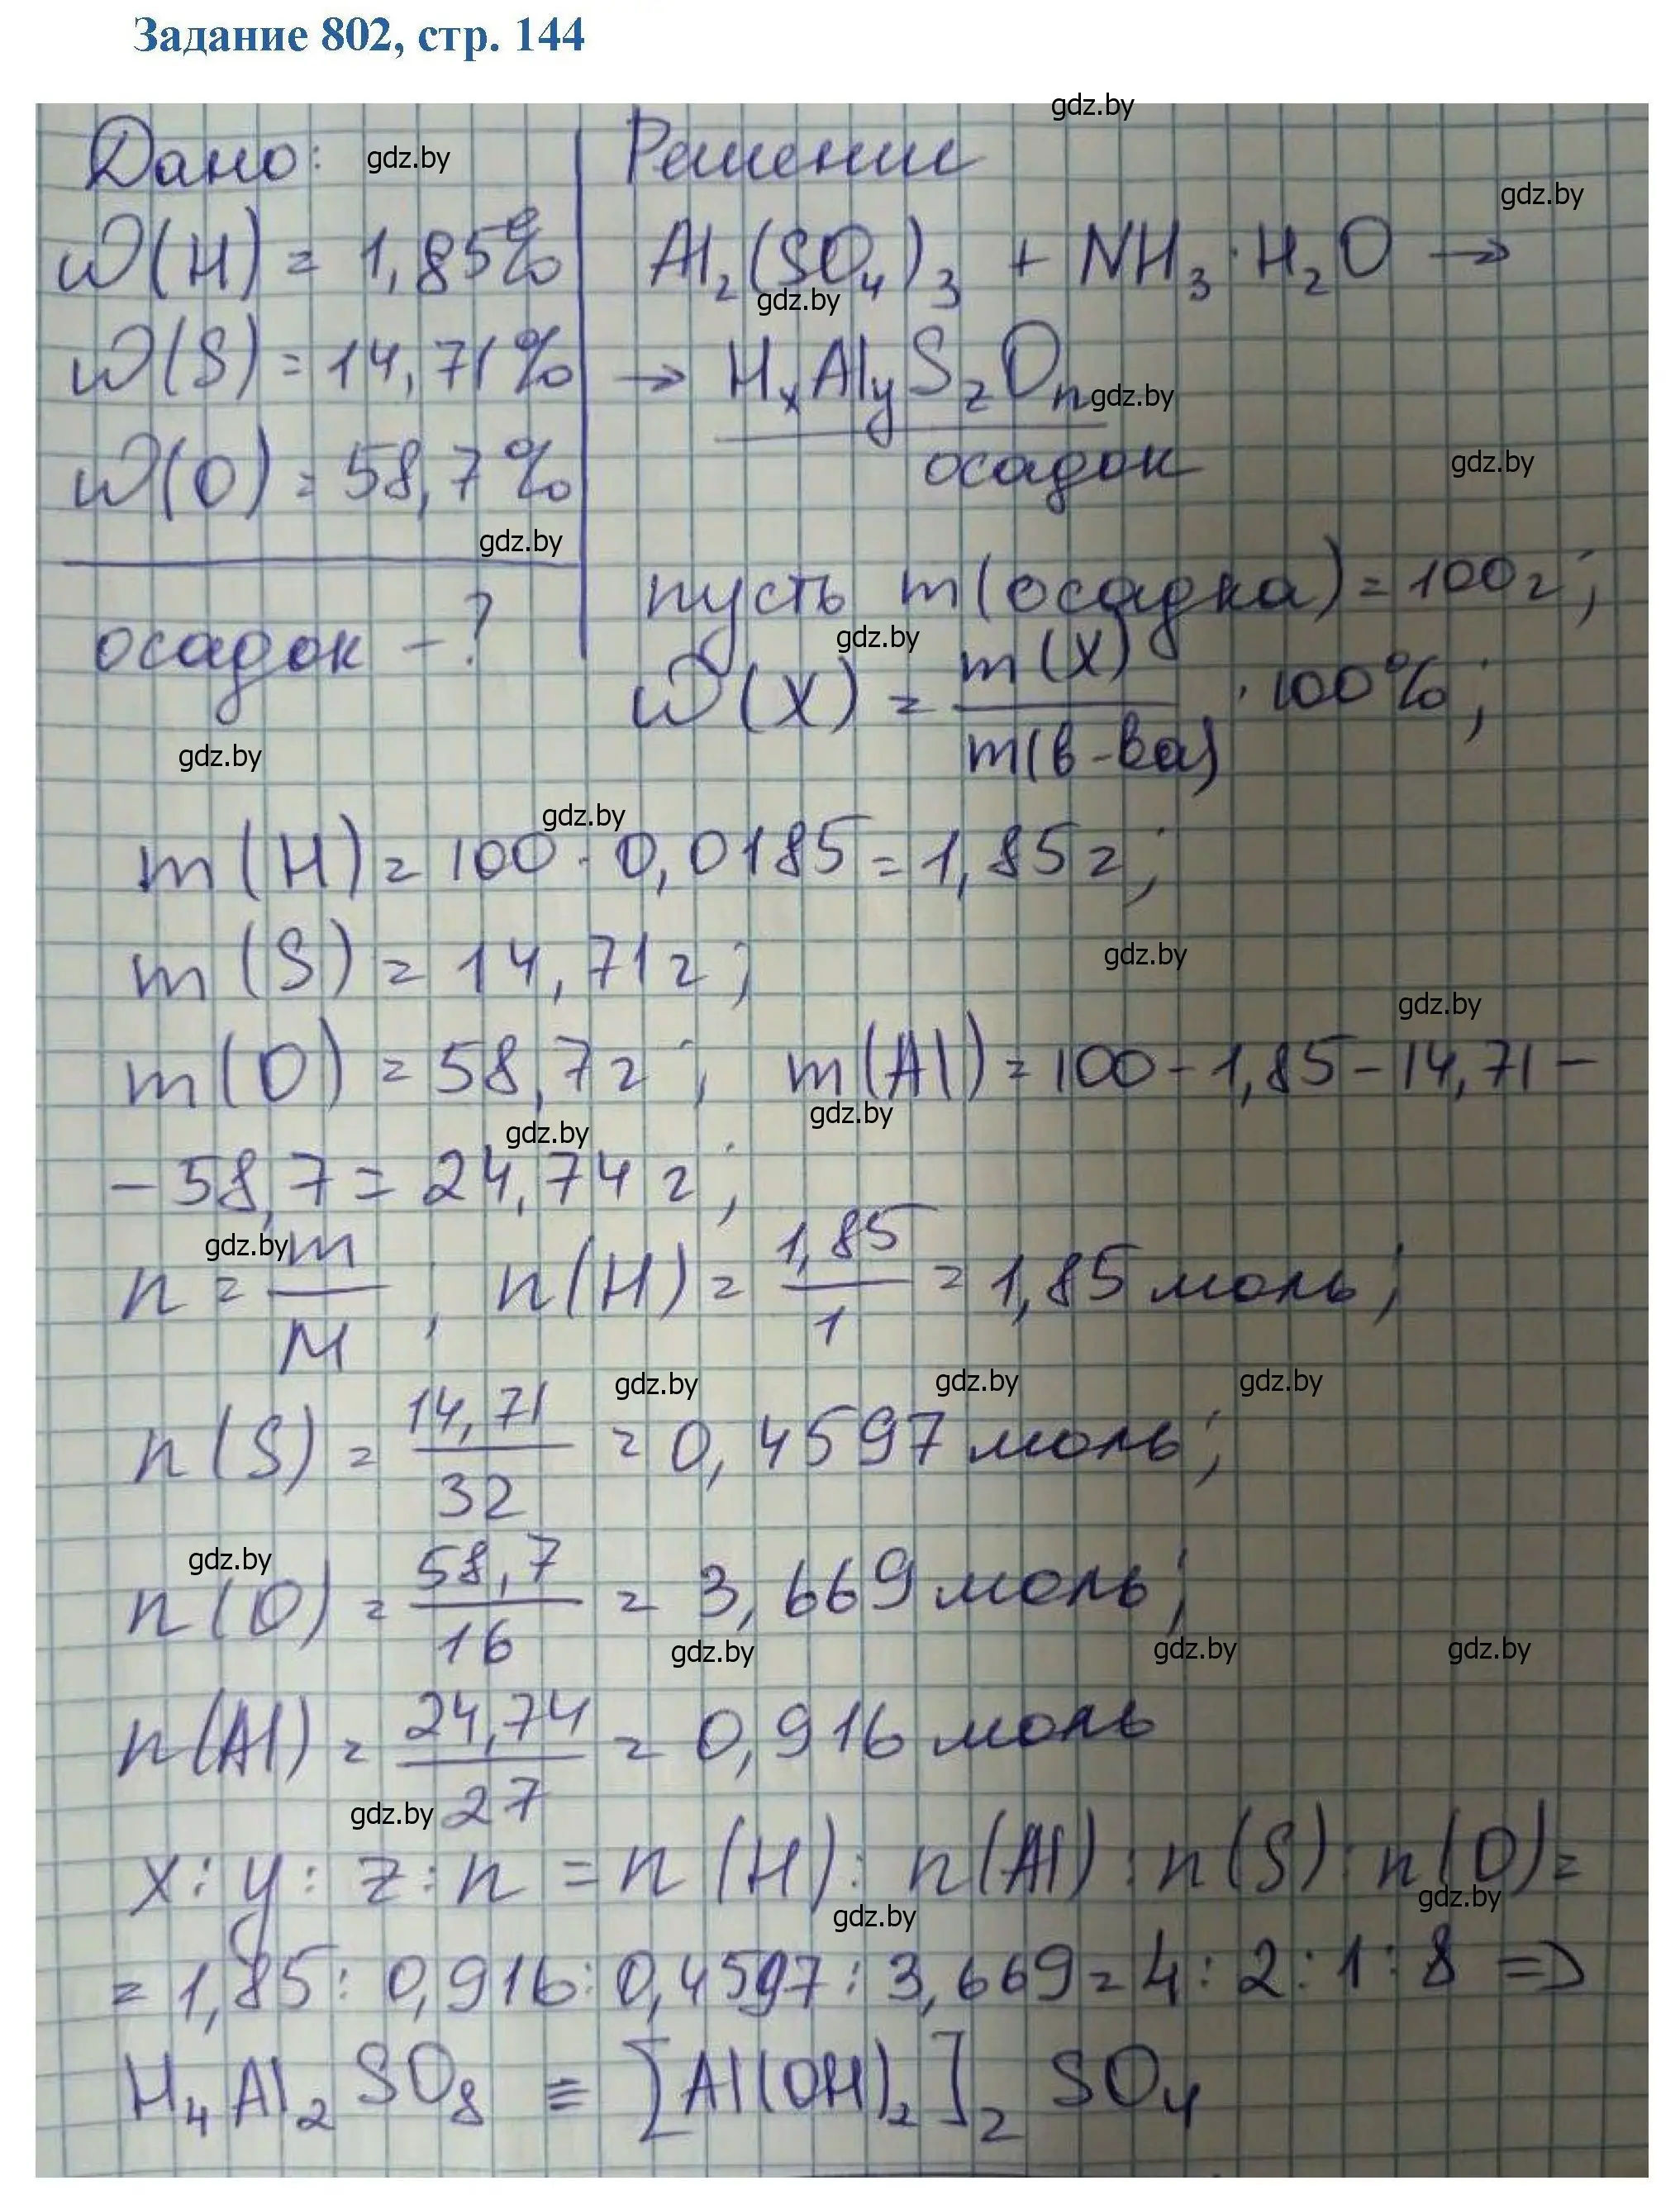 Задание 802, стр. 144
gdz.by
Дано: gdz.by
Решение
gdz.by
w(H) = 1,85%
Al₂(SO₄)₃ + NH₃·H₂O →
gdz.by
w(S) = 14,71%
→ HₓAlᵧS_zOₙ gdz.by
w(O) = 58,7%
осадок gdz.by
gdz.by
осадок - ?
пусть m(осадка) = 100г;
gdz.by
w(X) = m(X) / m(в-ва) · 100%;
gdz.by
gdz.by
m(H) = 100 · 0,0185 = 1,85г;
m(S) = 14,71г; gdz.by
gdz.by
m(O) = 58,7г; m(Al) = 100 - 1,85 - 14,71 -
gdz.by gdz.by
- 58,7 = 24,74 г;
gdz.by
n = m / M, n(H) = 1,85 / 1 = 1,85 моль;
gdz.by gdz.by gdz.by
n(S) = 14,71 / 32 = 0,4597 моль;
gdz.by
n(O) = 58,7 / 16 = 3,669 моль;
gdz.by gdz.by gdz.by
n(Al) = 24,74 / 27 = 0,916 моль
gdz.by
x : y : z : n = n(H) : n(Al) : n(S) : n(O) =
gdz.by gdz.by
= 1,85 : 0,916 : 0,4597 : 3,669 = 4 : 2 : 1 : 8 =>
H₄Al₂SO₈ ≡ [Al(OH)₂]₂SO₄